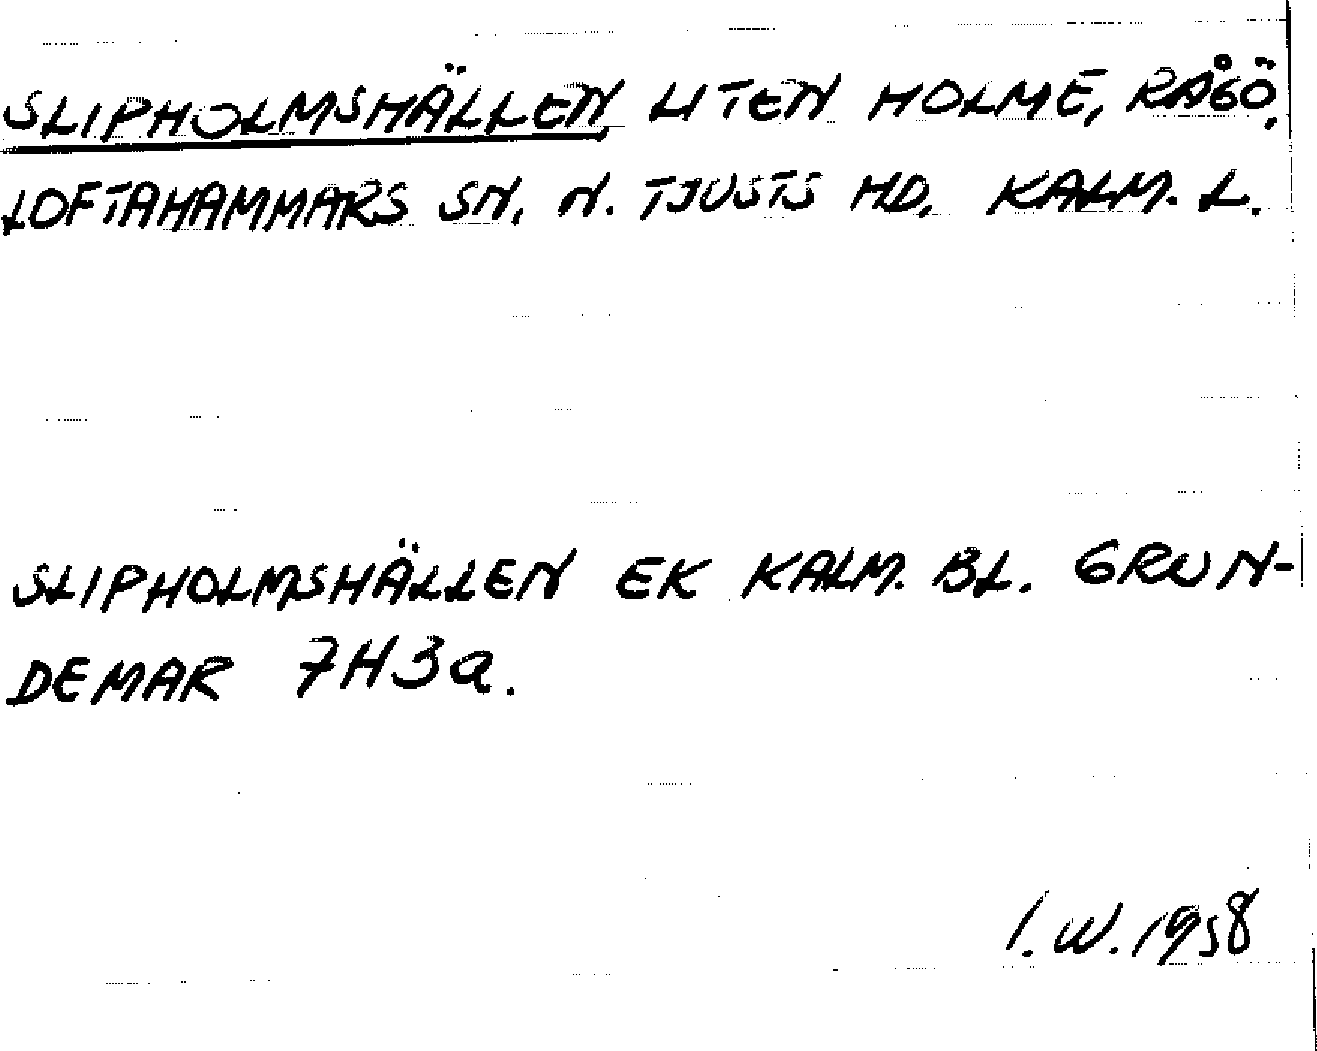 SLIPHOLMSHÄLLEN LITEN HOLME, RÅGÖ,
LOFTAHAMMARS SN, N. TJUSTS HD, KALM. L.
SLIPHOLMSHÄLLEN EK KALM. BL. GRUN-
DEMAR 7H3a.
I.W.1958